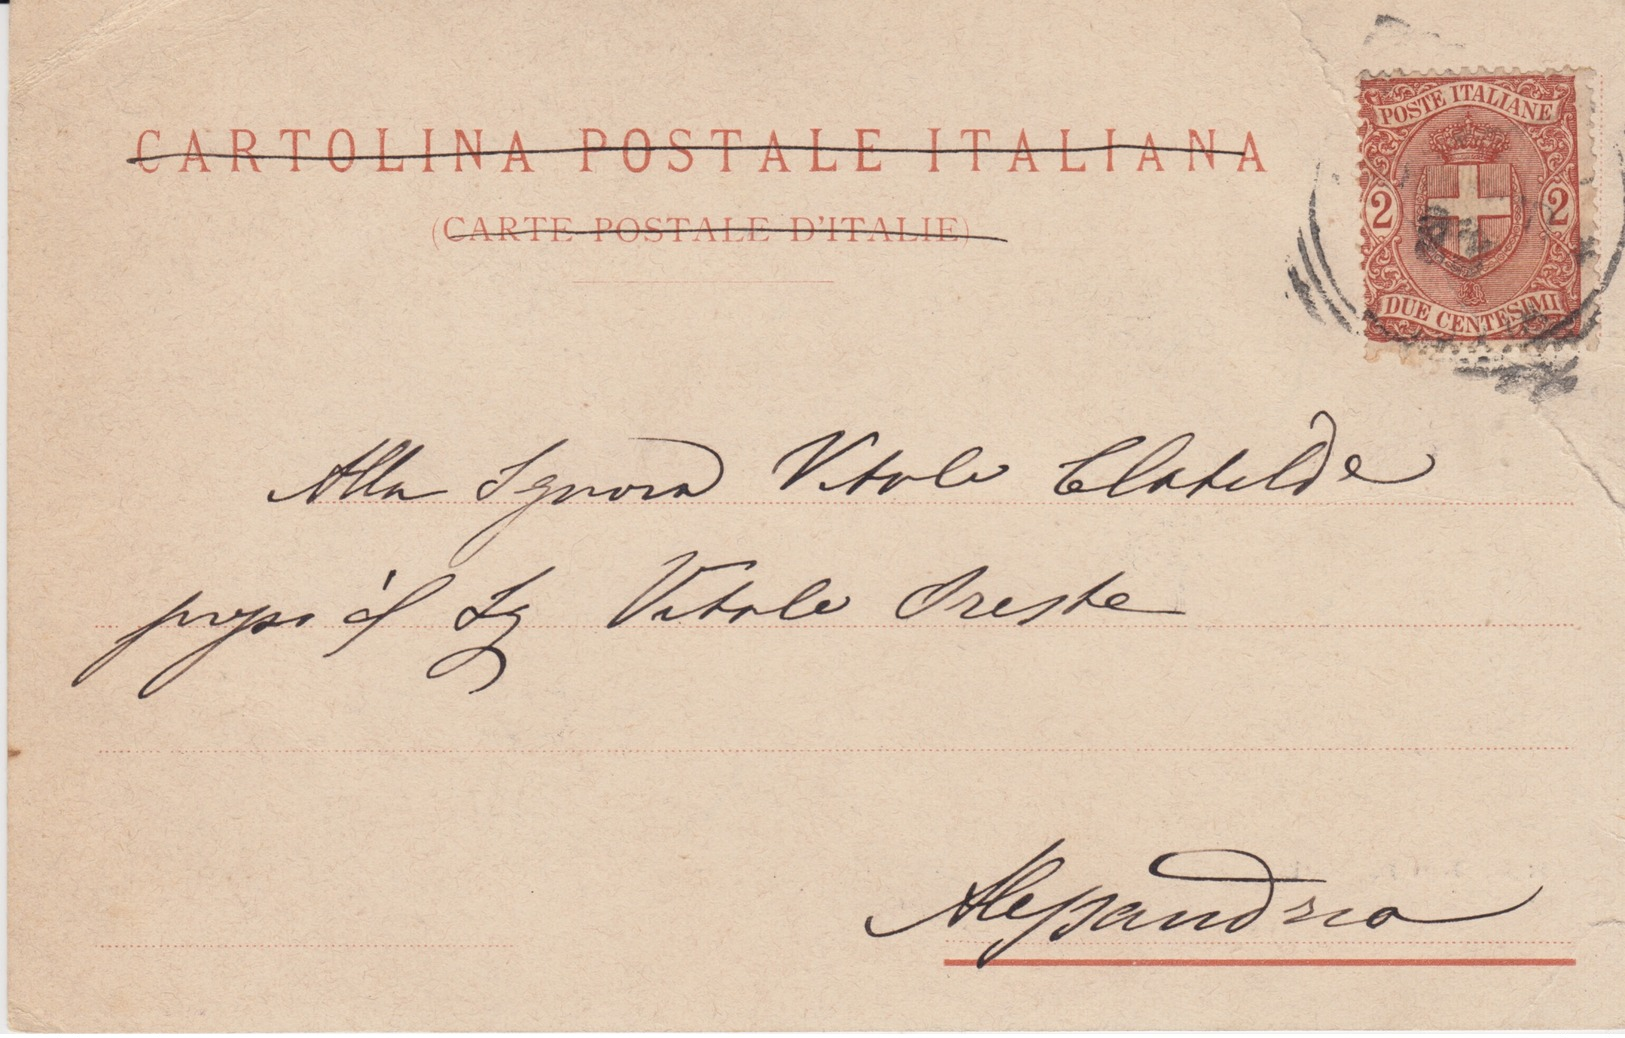 CARTOLINA POSTALE ITALIANA
(CARTE POSTALE D'ITALIE)
POSTE ITALIANE
2 2
DUE CENTESIMI
Alla Signora Vitale Clotilde
presso il Sg Vitale Oreste
Alessandria